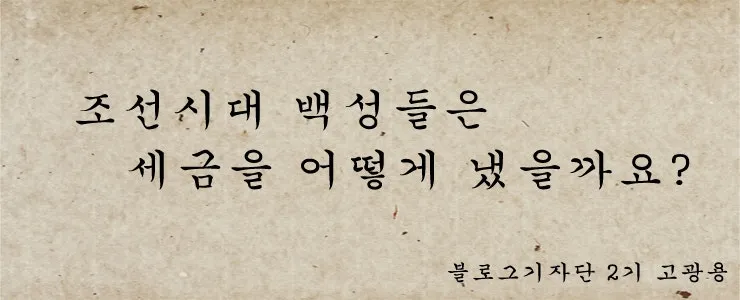 조선시대 백성들은
세금을 어떻게 냈을까요?
블로그기자단 2기 고광용